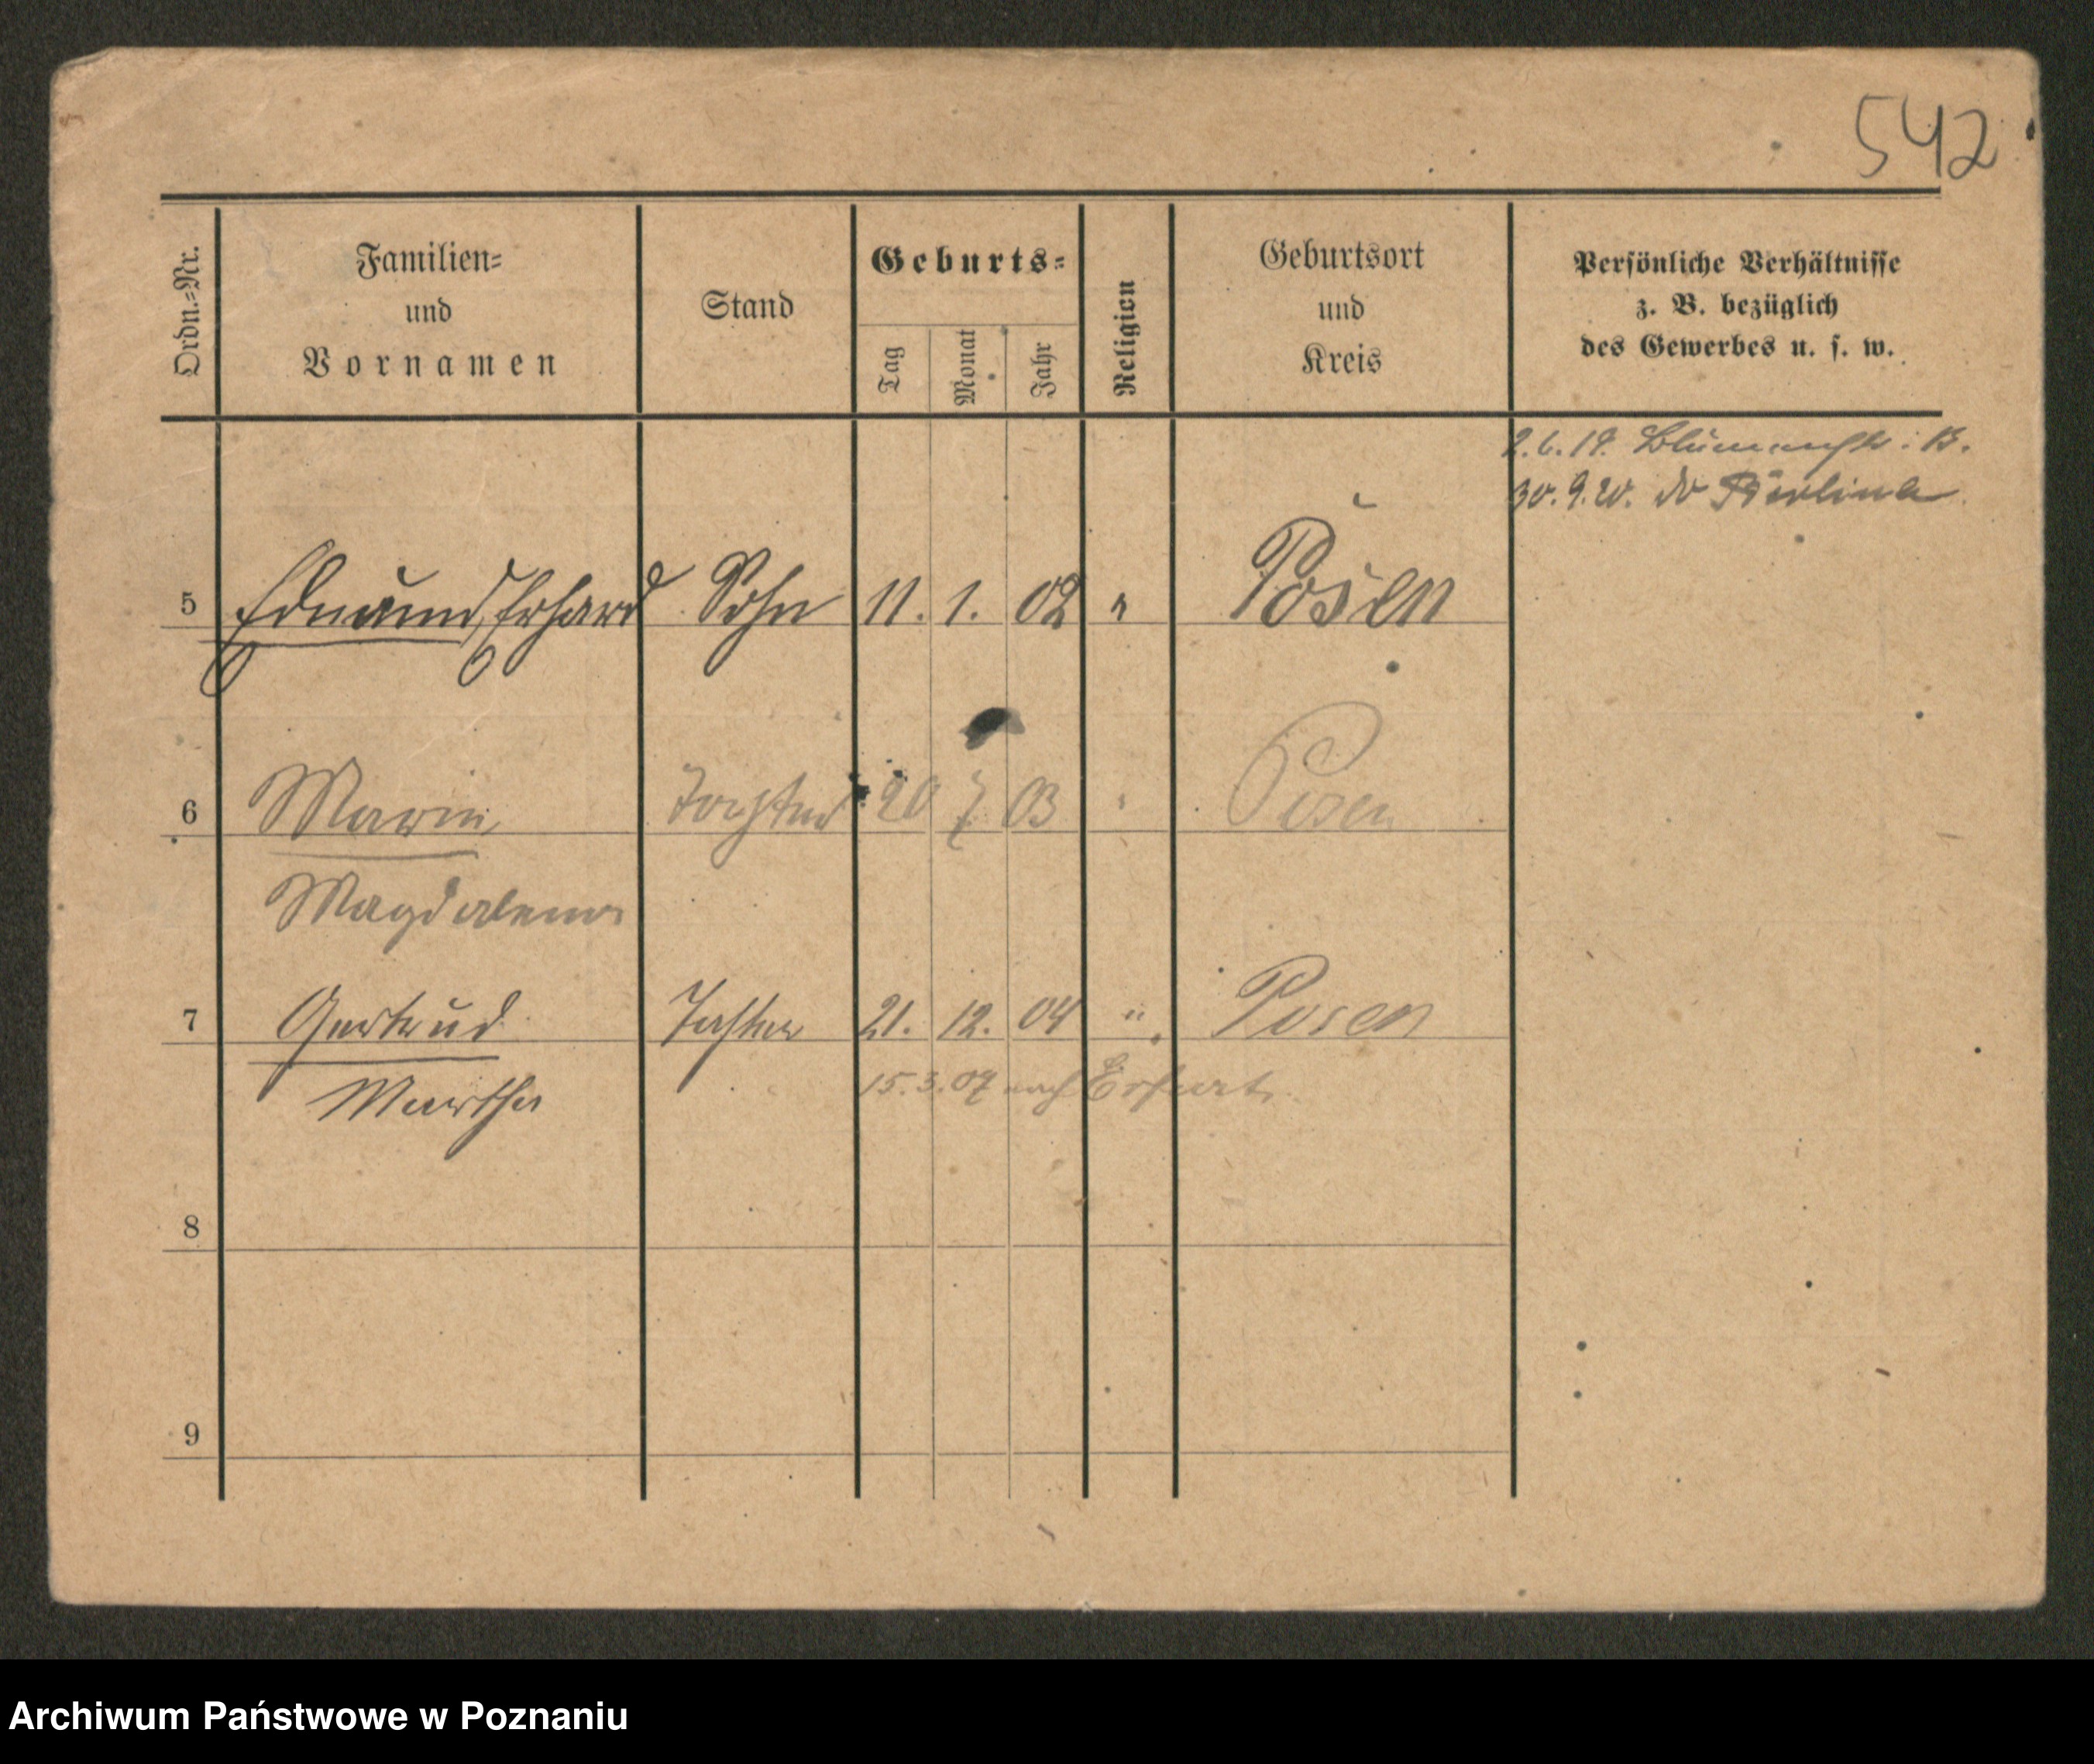 542
Ordn.=Nr.
Familien=
und
Vornamen
Stand
Geburts=
Tag
Monat
Jahr
Religion
Geburtsort
und
Kreis
Persönliche Verhältnisse
z. B. bezüglich
des Gewerbes u. s. w.
2.6.19. 13.
30.9.20. do Berlina
5 Edmund, Erhard Sohn 11. 1. 02 " Posen
6 Marie Tochter 20 7 03 " Posen
Magdalena
7 Gertrud Tochter 21. 12. 04 " Posen
15.3.07 nach Erfurt
Martha
8
9
Archiwum Państwowe w Poznaniu